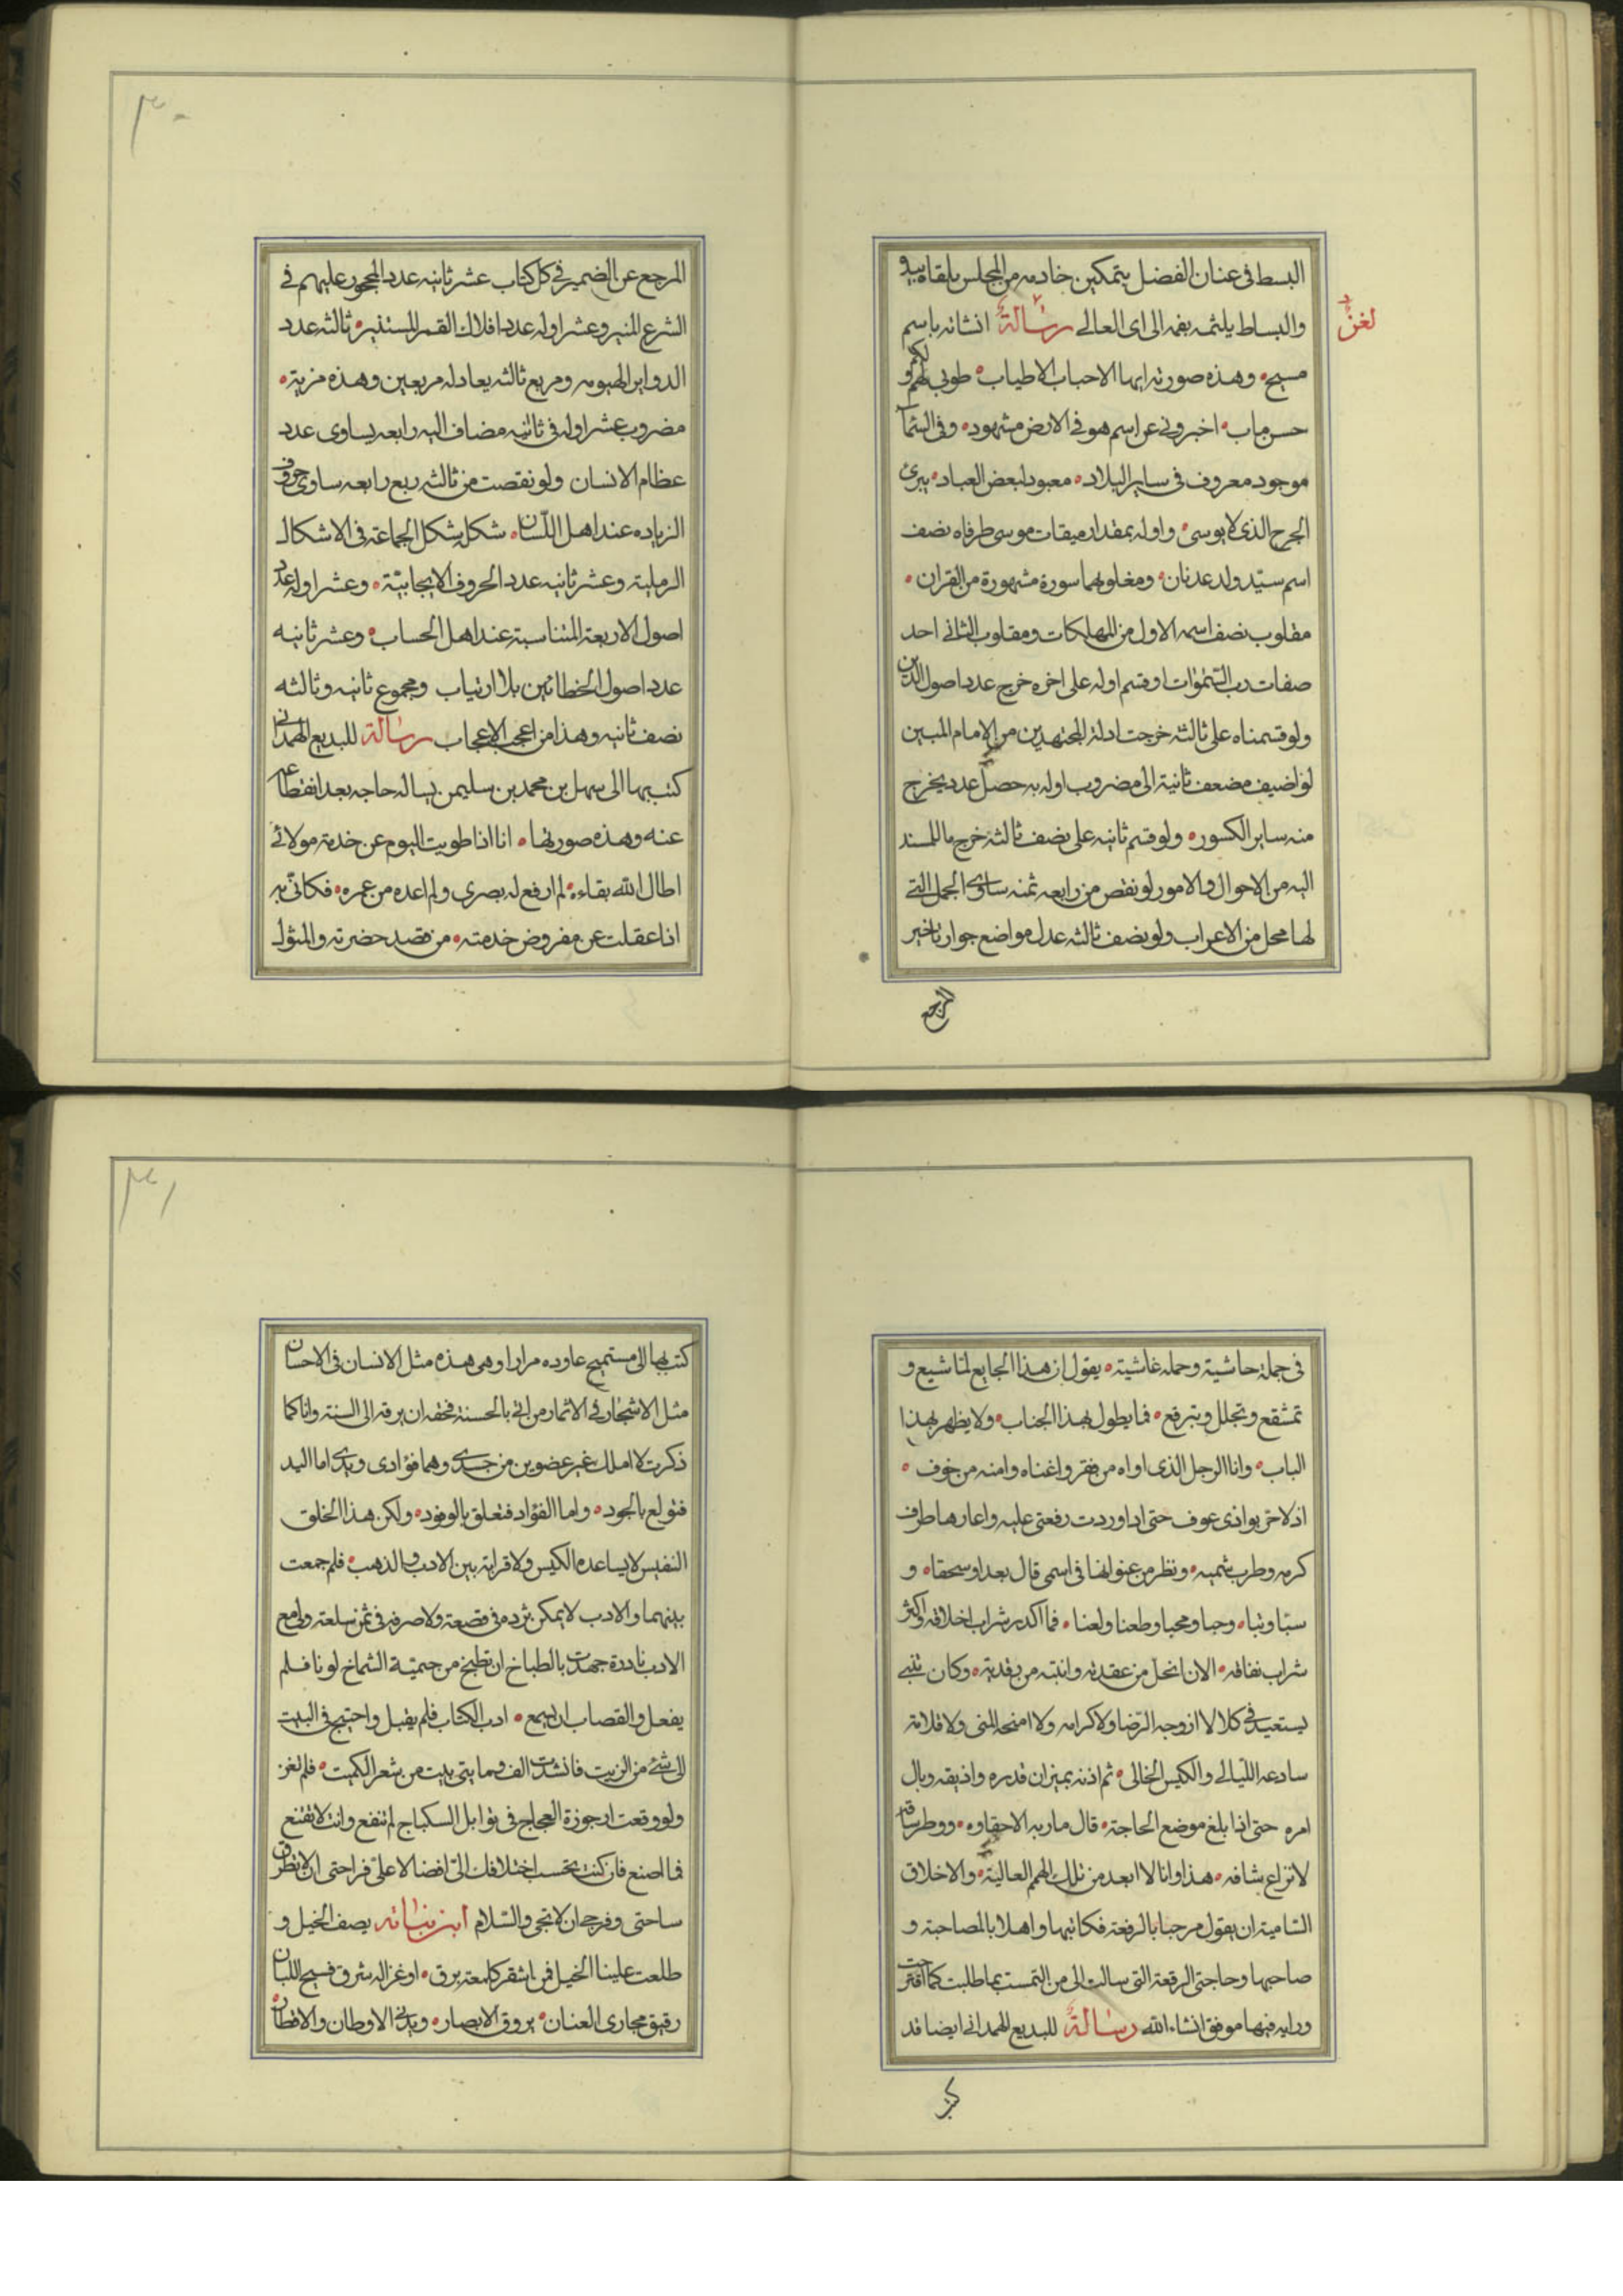 البسط فى عنان الفضل بتمكين خادمه من المجلس يلقاه بيده
والبساط يلثمه بفمه الى اى العالى رسالة انشاته باسم
لغز
مسيح وهذه صورته ايها الاحباب الاطياب طوبى لكم و
حسن ماب اخبرونى عن اسم هو فى الارض مشهود وفى السما
موجود معروف فى ساير البلاد معبود لبعض العباد يبرئ
الجرح الذى لا يوسى واوله بمقدار ميقات موسى طرفاه نصف
اسم سيد ولد عدنان ومغلوبهما سورة مشهورة من القران
مقلوب نصف اسمه الاول من المهلكات ومقلوب الثانى احد
صفات رب السموات او قسم اوله على اخره خرج عدد اصول الدين
ولو قسمناه على ثالثه خرجت ادلة المجتهدين من الامام المبين
لو اضيف مضعف ثانية الى مضروب اوله به حصل عدد يخرج
منه ساير الكسور ولو قسم ثانيه على نصف ثالثه خرج ما للمسند
اليه من الاحوال والامور لو نقص من رابعه ثمنه ساوى الجمل التى
لها محل من الاعراب ولو نصف ثالثه عدل مواضع جواز تاخير
المرجع
٣٠
المرجع عن الضمير فى كل كتاب عشر ثانيه عدد المحجور عليهم فى
الشرع المنير وعشر اوله عدد افلاك القمر المستنير ثالثه عدد
الدواير الهيوميه ومربع ثالثه يعادله مربعين وهذه مزية
مضروب عشر اوله فى ثانيه مضاف اليه رابعه يساوى عدد
عظام الانسان ولو نقصت من ثالثه ربع رابعه ساوى حروف
الزياده عند اهل اللسان شكله شكل الجماعة فى الاشكال
الرملية وعشر ثانيه عدد الحروف الايجابية وعشر اوله عدد
اصول الاربعة المتناسبة عند اهل الحساب وعشر ثانيه
عدد اصول الخطائين بلا ارتياب ومجموع ثانيه وثالثه
نصف ثانيه وهذا من اعجب الاعجاب رسالة للبديع الهمدانى
كتب بها الى سهل بن محمد بن سليمن يساله حاجه بعد انقطاعه
عنه وهذه صورتها انا اذا طويت اليوم عن خدمة مولائى
اطال الله بقاءه لم ارفع له بصرى ولم اعده من عمره فكانى به
اذا عقلت عن مفروض خدمته من قصد حضرته والمثول
فى جملة حاشيته وحمله غاشيته يقول ان هذا الجايع لما شبع و
تمشقع وتجلل وتبرقع فما يطول بهذا الجناب ولا يظهر بهذا
الباب وانا الرجل الذى اواه من فقر واغناه وامنه من خوف
اذ لا حر بوادى عوف حتى اذا وردت رفعتى عليه واعارها طرف
كرمه وطرب شميه ونظر من عنوانها فى اسمى قال بعدا وسحقا و
سبا وتبا وحبا ومحبا وطعنا ولعنا فما اكدر شراب اخلاقه واكثر
شراب نفاقه الان انحل من عقدته وانتبه من رقدته وكان تنبى
يستعيد فى كلا لا ازوجه الرضا ولا كرامه ولا امنحه المنى ولا قلامة
سادعه الليالى والكيس الخالى ثم ازنه بميزان قدره واذيقه وبال
امره حتى اذا بلغ موضع الحاجة قال ماربه الاحفاوه ووطر ساقه
لا نزاع شاقه هذا وانا لا ابعد من تلك الهمم العالية والاخلاق
السامية ان يقول مرحبا بالرفعة فكاتبها واهلا بالمصاحبة و
صاحبها وحاجتى الرقعة التى سالت الى من التمست بما طلبت كما اقترحت
ورايه فيها موفق انشاء الله رسالة للبديع الهمدانى ايضا قد
كتب
٣١
كتب بها الى مستميح عاوده مرارا وهى هذه مثل الانسان فى الاحسان
مثل الاشجار فى الاثمار من اتى بالحسنة فحقه ان يرفه الى السنة وانا كما
ذكرت لا املك غير عضوين من جسدى وهما فؤادى ويدى اما اليد
فتولع بالجود واما الفؤاد فتعلق بالوفود ولكن هذا الخلق
النفيس لا يساعده الكيس ولا قرابة بين الادب والذهب فلم جمعت
بينهما والادب لا يمكن ثرده فى قصعة ولا صرفه فى ثمن سلعة ولى مع
الادب نادرة جهدت بالطباخ ان يطبخ من جيمية الشماخ لونا فلم
يفعل والقصاب ان اسمع ادب الكتاب فلم يقبل واحتيج فى البيت
الى شئ من الزيت فانشدت الف ومايتى بيت من شعر الكميت فلم تغن
ولو وقعت ارجوزة العجاج فى توابل السكباج لم تنفع وانت لا تقنع
فما اصنع فان كنت تحسب اختلافك الى افضالا على فراحتى ان لا تطرق
ساحتى وفرجى ان لا تجى والسلام ابن نباته يصف الخيل و
طلعت علينا الخيل فمن اشقر كلمعة برق او غزاله شرق فسيح اللبان
رقيق مجارى العنان بروق الابصار ويدنى الاوطان والاقطار